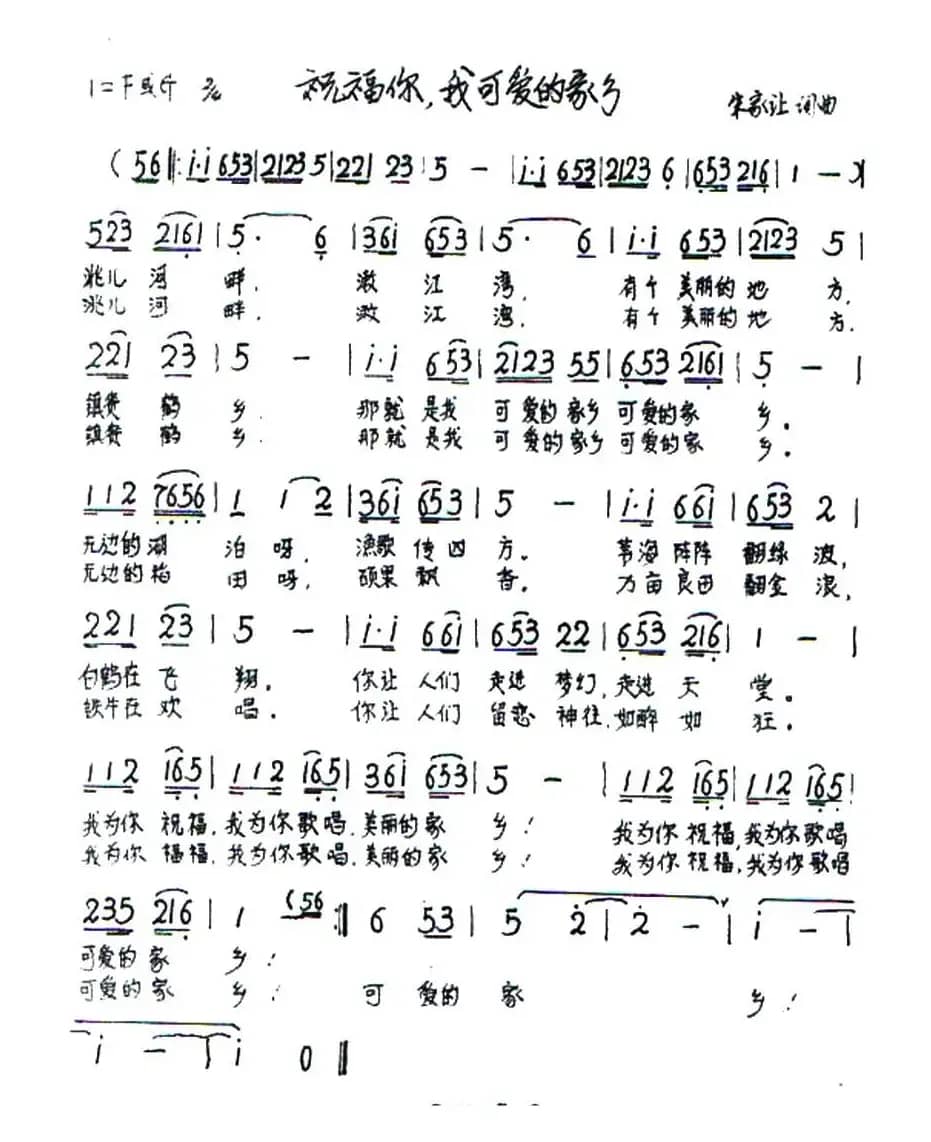 1=F或G 2/4 祝福你,我可爱的家乡 朱家让 词曲
(56‖:i·i 653|2123 5|221 23|5 -|i·i 653|2123 6|653 216|1 -)|
523 2161|5· 6|361 653|5· 6|i·i 653|2123 5|
洮儿河畔, 嫩江湾, 有个美丽的地方,
洮儿河畔, 江湾, 有个美丽的地方,
221 23|5 -|i·i 653|2123 55|653 2161|5 -|
镇赉鹤乡. 那就是我可爱的家乡可爱的家乡。
镇赉鹤乡. 那就是我可爱的家乡可爱的家乡。
112 7656|1 12|36i 653|5 -|i·i 66i|653 2|
无边的湖泊呀, 渔歌传四方. 苇海阵阵翻绿波,
无边的稻田呀, 硕果飘香. 万亩良田翻金浪,
221 23|5 -|i·i 66i|653 22|653 216|1 -|
白鹤在飞翔. 你让人们走进梦幻,走进天堂。
铁牛在欢唱. 你让人们留恋神往,如醉如狂.
112 165|112 165|36i 653|5 -|112 165|112 165|
我为你祝福,我为你歌唱,美丽的家乡! 我为你祝福,我为你歌唱
我为你福,我为你歌唱,美丽的家乡! 我为你祝福,我为你歌唱
235 216|1 (56:‖6 53|5 2|2 -|i -|
可爱的家乡!
可爱的家乡! 可爱的家乡!
i - i 0‖